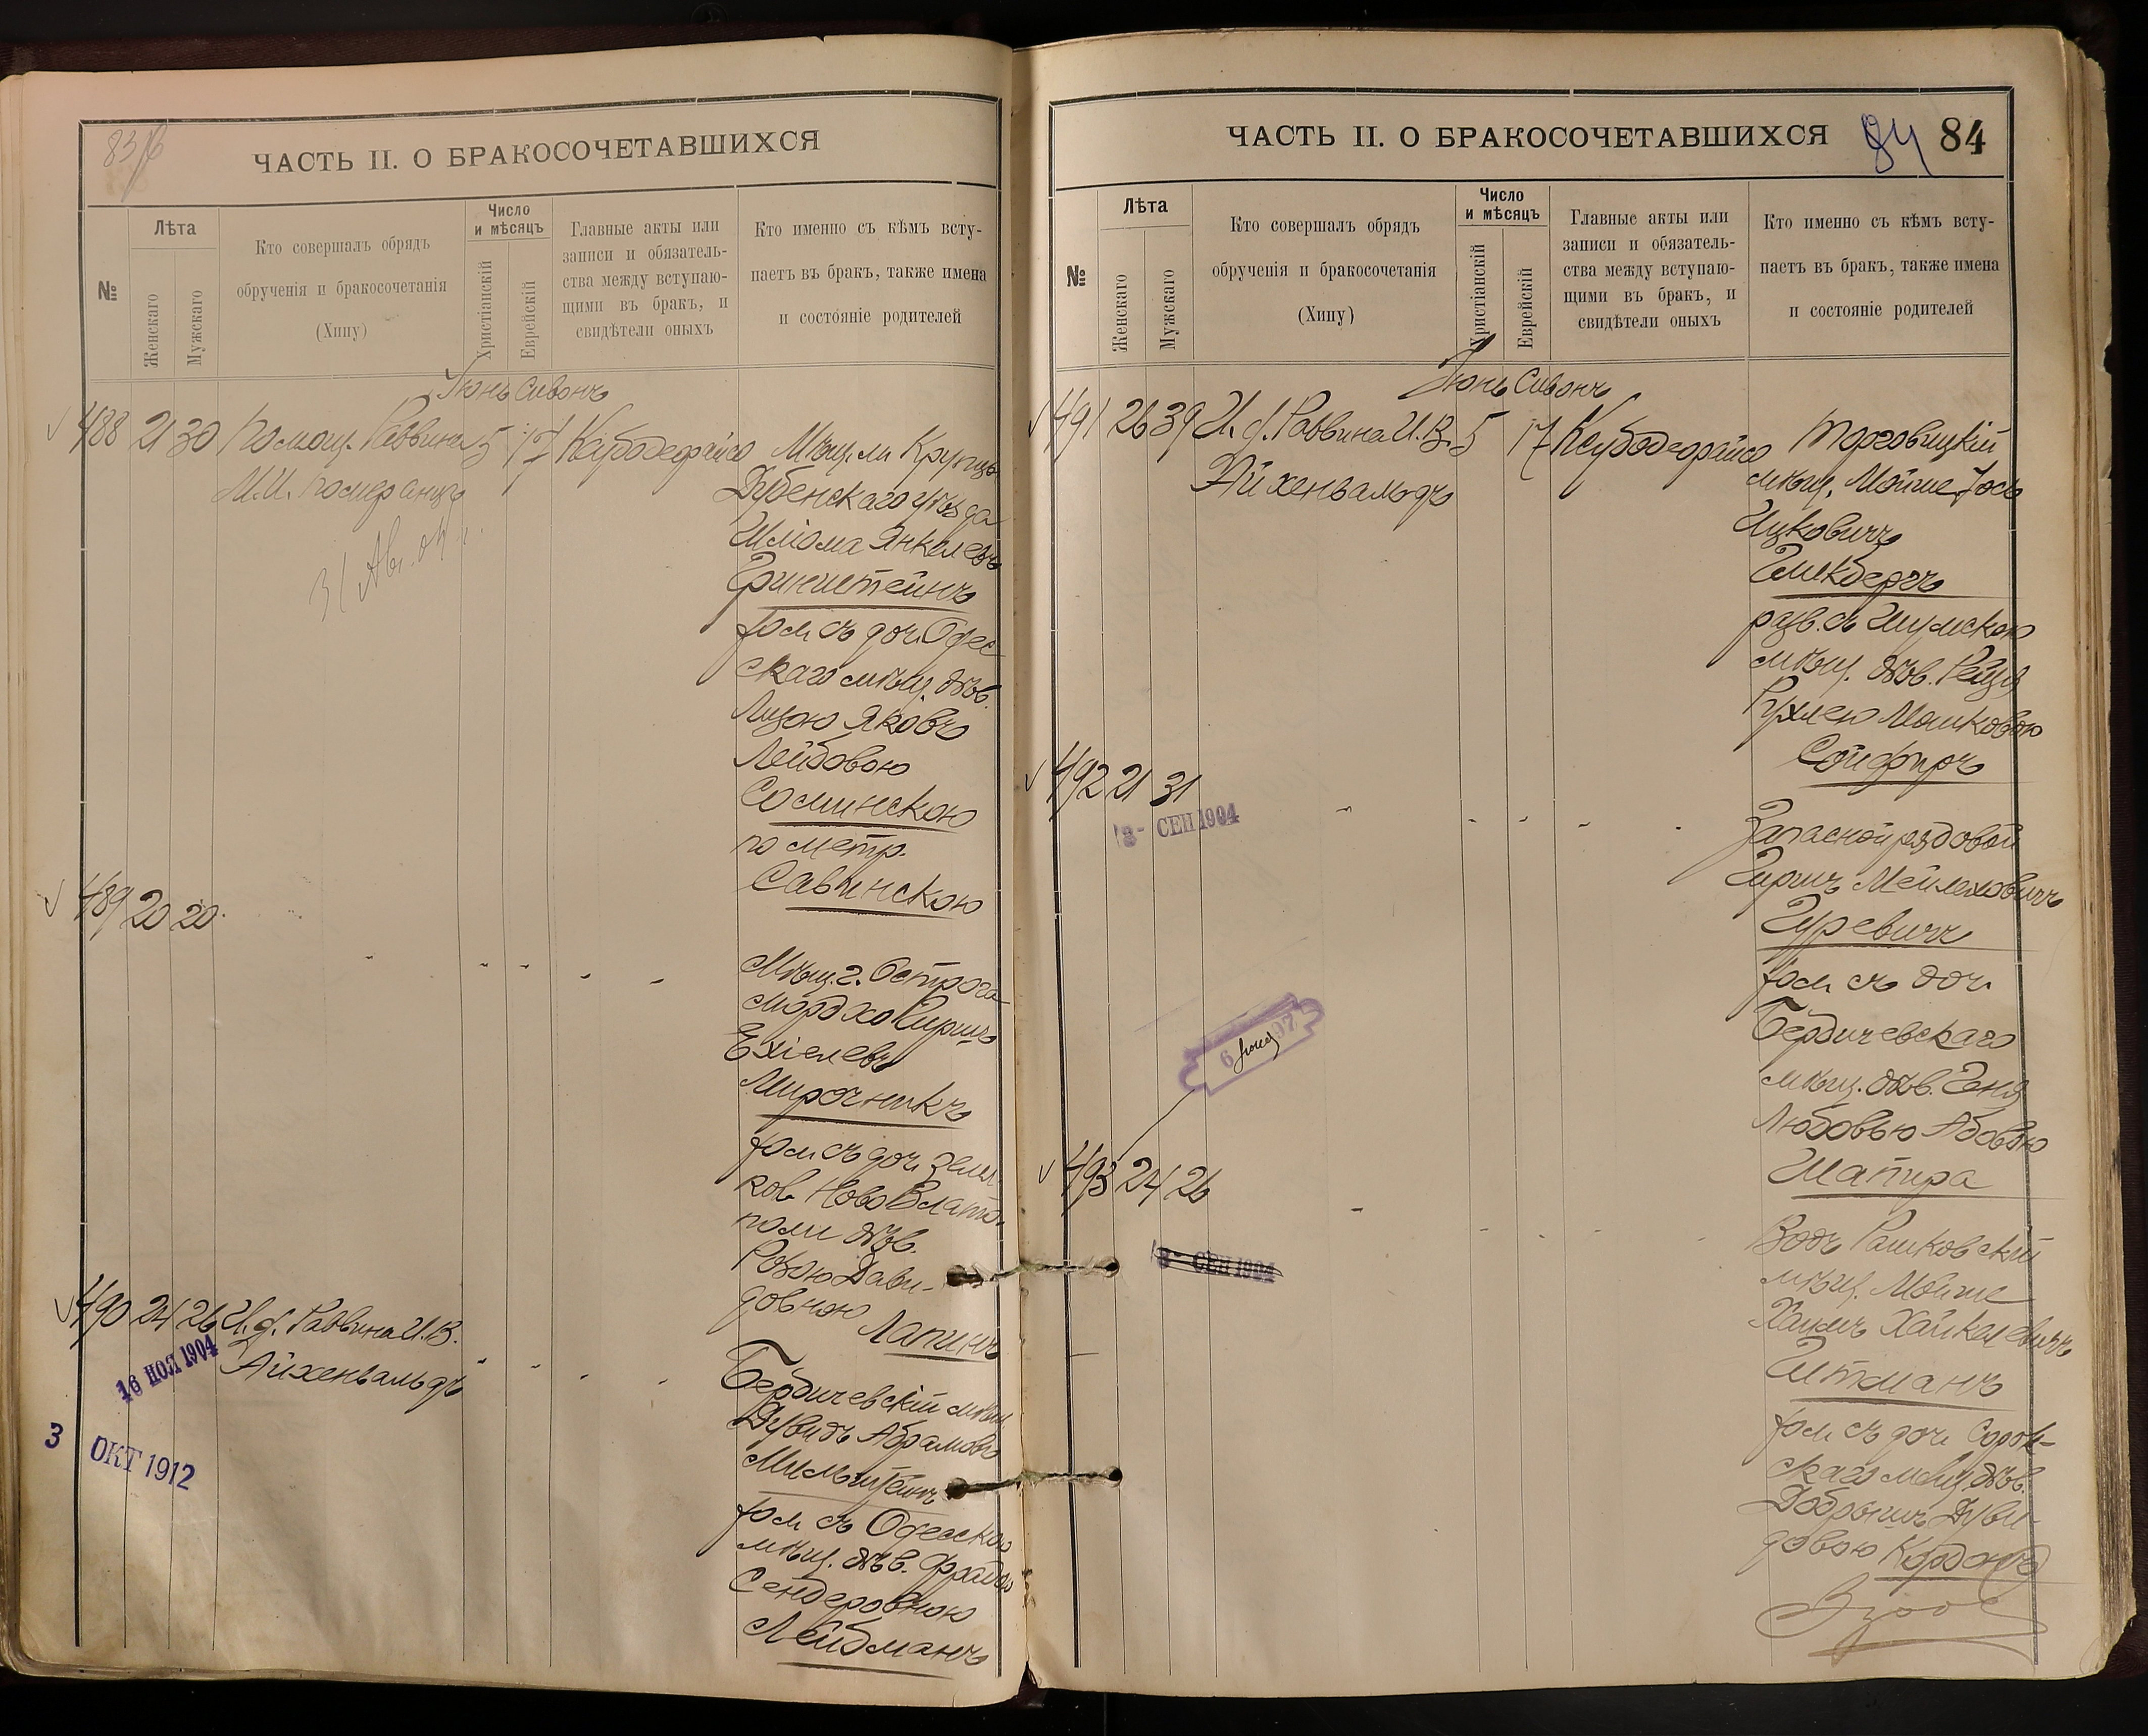 83/б
ЧАСТЬ II. О БРАКОСОЧЕТАВШИХСЯ
№
Лѣта
Женскаго
Мужскаго
Кто совершалъ обрядъ
обрученія и бракосочетанія
(Хипу)
Число
и мѣсяцъ
Христіанскій
Еврейскій
Главные акты или
записи и обязатель-
ства между вступаю-
щими въ бракъ, и
свидѣтели оныхъ
Кто именно съ кѣмъ всту-
паетъ въ бракъ, также имена
и состояніе родителей
Іюнь Сивонъ
488 21 30 Помощ. Раввина 5 17
М.И. Померанцъ
31 Авг. 04 г.
Мѣщ. м. Крупцы
Дубенскаго уѣзда
Шліома Янкелевъ
Гринштейнъ
хол. съ доч. Одес
скаго мѣщ. дѣв.
Лизою Яковъ
Лейбовою
Соминскою
по метр.
Савинскою
489 20 20
Мѣщ. г. Острога
Мордхо Гиршъ
Ехіелевъ
Мирочникъ
хол. съ доч. земл.
кол. НовоЗлато-
поли дѣв.
Розою Дави-
довною Лапинъ
490 24 26 И. д. Раввина И.В.
Айхенвальдъ
16 НОЯ 1904
3 ОКТ 1912
Бердичевскій мѣщ.
Дувидъ Абрамовъ
Мильштейнъ
хол. съ Одесскою
мѣщ. дѣв. Фрейдою
Сендеровною
Лейбманъ
ЧАСТЬ II. О БРАКОСОЧЕТАВШИХСЯ 84 84
№
Лѣта
Женскаго
Мужскаго
Кто совершалъ обрядъ
обрученія и бракосочетанія
(Хипу)
Число
и мѣсяцъ
Христіанскій
Еврейскій
Главные акты или
записи и обязатель-
ства между вступаю-
щими въ бракъ, и
свидѣтели оныхъ
Кто именно съ кѣмъ всту-
паетъ въ бракъ, также имена
и состояніе родителей
Іюнь Сивонъ
491 26 39 И. д. Раввина И.В. 5 17
Айхенвальдъ
Торговицкій
мѣщ. Мойше Іось
Ицковичъ
Гликбергъ
разв. съ Шумскою
мѣщ. дѣв. Рейзя
Рухлею Мошковою
Сойферъ
492 21 31
8- СЕН 1904
Запасной рядовой
Гиршъ Мейлеховичъ
Гуревичъ
хол. съ доч.
Бердичевскаго
мѣщ. дѣв. Геня
Любовью Абовою
Шапира
493 24 26
8- СЕН 1904
Вдов. Рашковскій
мѣщ. Мойше
Хаимъ Хайкелевичъ
Гитманъ
хол. съ доч. Сорок-
скаго мѣщ. дѣв.
Добрышъ Дуви-
довою Кордонъ